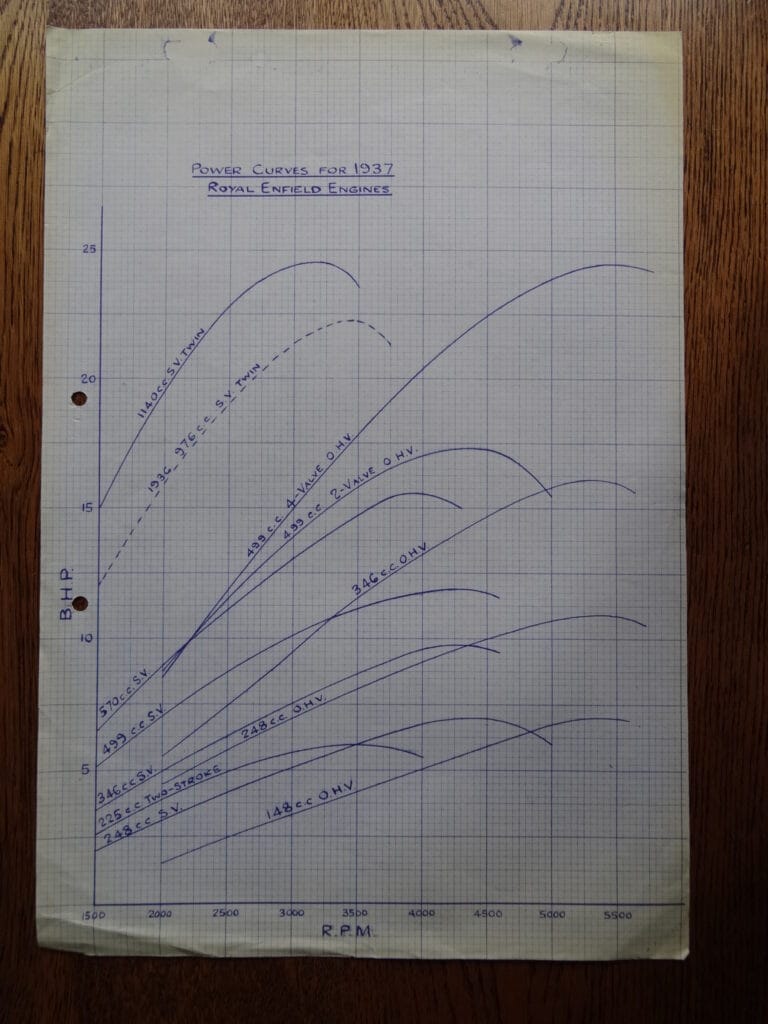 POWER CURVES FOR 1937
ROYAL ENFIELD ENGINES
25
1140 cc S.V. TWIN
20
1936 976 c.c. S.V. TWIN
499 c.c. 4-VALVE O.H.V.
499 c.c. 2-VALVE O.H.V.
15
346 c.c. O.H.V.
B.H.P.
10
570 c.c. S.V.
499 c.c. S.V.
248 c.c. O.H.V.
346 cc S.V.
5
225 c.c. TWO-STROKE
248 cc S.V.
148 cc O.H.V.
1500 2000 2500 3000 3500 4000 4500 5000 5500
R.P.M.